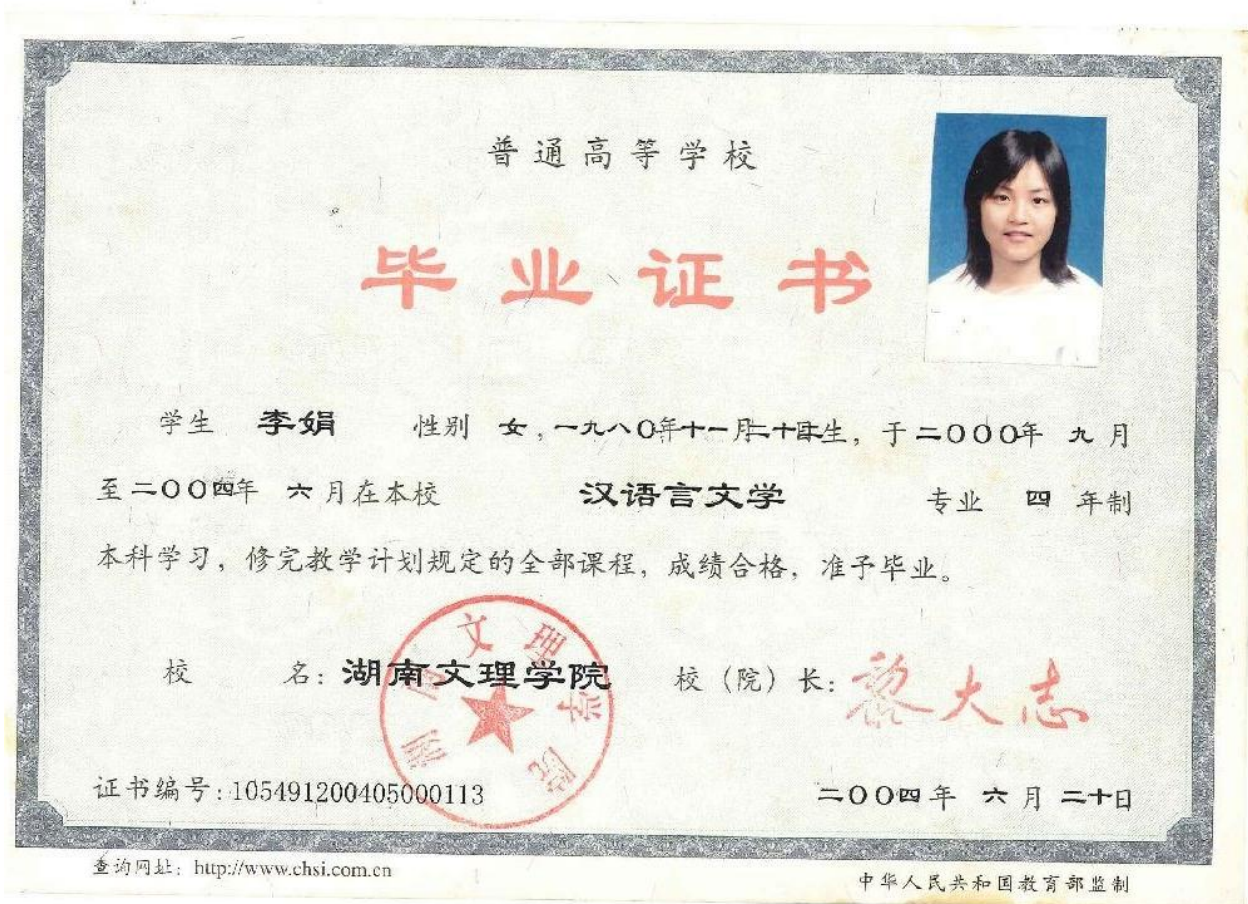 普通高等学校
毕业证书
学生 李娟 性别 女，一九八〇年十一月二十日生，于二〇〇〇年 九 月
至二〇〇四年 六 月在本校 汉语言文学 专业 四 年制
本科学习，修完教学计划规定的全部课程，成绩合格，准予毕业。
校 名：湖南文理学院 校（院）长：黎大志
湖南文理学院
证书编号：105491200405000113 二〇〇四年 六 月 二十日
查询网址：http://www.chsi.com.cn 中华人民共和国教育部监制